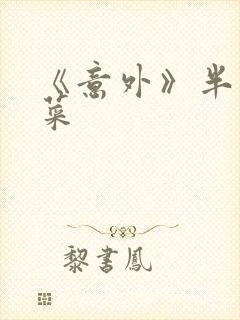 《意外》半
菜
黎書鳳